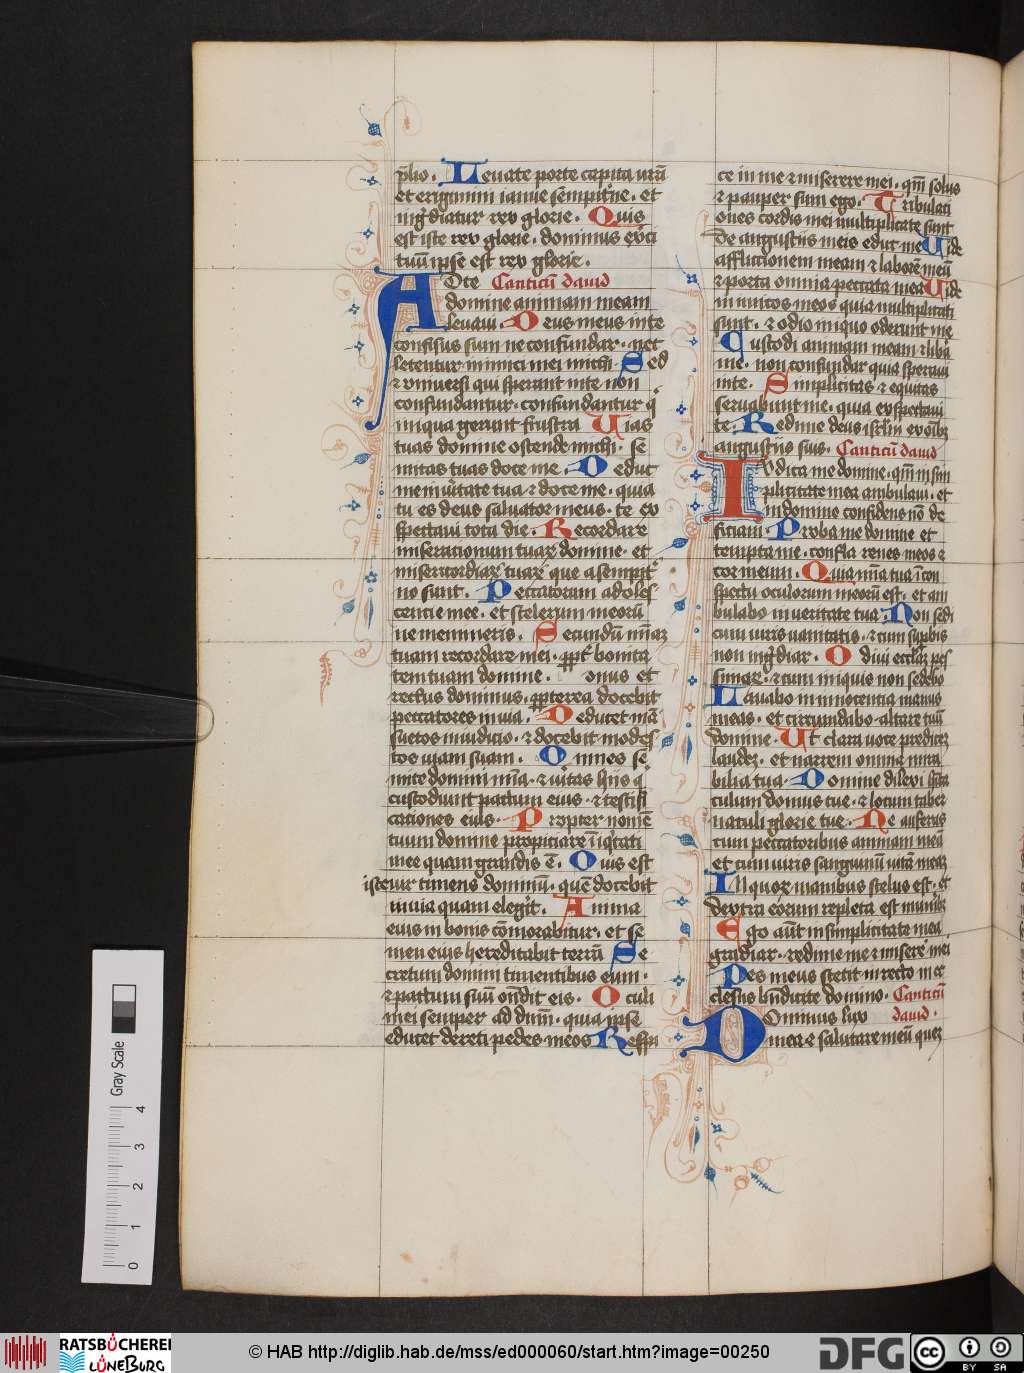 p̄lio. Leuate porte capita vr̄a
et eriguimini ianue sempit̉ne. et
ingr̄diatur rex glorie. Quis
est iste rex glorie. dominus exci
tuū ipse est rex glorie.
AD te Canticū dauid
domine animam meam
leuaui. Deus meus in te
confisus sum ne confundar. nec
letentur inimici mei michi Sed
⁊ vniuersi qui sperant in te non
confundantur. confundantur q̇
iniqua gerunt frustra Uias
tuas domine ostende michi. se
mitas tuas doce me. Deduc
me in v̉itate tua ⁊ doce me. quia
tu es deus saluator meus. te ex
spectaui tota die. Recordare
miserationum tuaꝝ domine. et
misericordiaꝝ tuaꝝ que a sempit̉
no sunt. Peccatorum adoles
centie mee. et scelerum meorū
ne memineris. Secundū mīaꝫ
tuam recordare mei. ꝓpt̉ bonita
tem tuam domine. onus et
rectus dominus. ꝓpterea docebit
peccatores in via. Deducet mā
suetos in iudicio. ⁊ docebit modes
tos viam suam. Omnes se
mite domini mīa. ⁊ v̉itas hijs q̇
custodiunt pactum eius. ⁊ testifi
cationes eius. Propter nomē
tuum domine propiciare īiq̇tati
mee quam grandis ē. Quis est
iste vir timens dominū. quē docebit
in via quam elegit. Anima
eius in bonis cōmorabitur. et se
men eius hereditabit terrū Se
cretum domini timentibus eum.
⁊ pactum suū ōndit eis. Oculi
mei semper ad dnm̄. quia ipse
educet de reti pedes meos Respi
ce in me ⁊ miserere mei. qm̄ solus
⁊ pauper sum ego. Tribulaci
ones cordis mei multiplicate sunt
de angustijs meis educ me Uide
afflictionem meam ⁊ laborē meū
⁊ porta omnia peccata mea Uide
inimicos meos quia multiplicati
sunt. ⁊ odio iniquo oderunt me
Custodi animam meam ⁊ lib̉a
me. non confundar quia speraui
in te. Simplicitas ⁊ equitas
seruabunt me. quia exspectaui
te. Redime deus isrl̄m ex oīb⁊
angustijs suis. Canticū dauid
Iudica me domine. qm̄ in sim
plicitate mea ambulaui. et
in domino confidens nō de
ficiam. Proba me domine et
tempta me. confla renes meos ⁊
cor meum. Quia mīa tua ī con
spectu oculorum meorū est. et am
bulabo in veritate tua. Non sedi
cum viris vanitatis. ⁊ cum sup̄bis
non ingr̄diar. Odiui eccl̄iaꝫ pes
simaꝝ. ⁊ cum iniquis non sedebo
Lauabo in innocentia manus
meas. et circumdabo altare tuū
domine. Ut clara voce predicē
laudeꝫ. et narrem omnia mira
bilia tua. Domine dilexi hita
culum domus tue. ⁊ locum taber
naculi glorie tue. Ne auferas
cum peccatoribus animam meā
et cum viris sanguinū vitā meaꝫ
In quoꝝ manibus scelus est. et
dextra eorum repleta est munib⁊
Ego aūt in simplicitate mea
gradiar. redime me ⁊ misere mei
Pes meus stetit in recto in ec
clesijs bn̄dicite domino. Canticū
Dominus lux dauid.
mea ⁊ salutare meū queꝫ
Gray Scale
0 1 2 3 4
RATSBÜCHEREI
LÜNEBURG
© HAB http://diglib.hab.de/mss/ed000060/start.htm?image=00250
DFG
cc BY SA